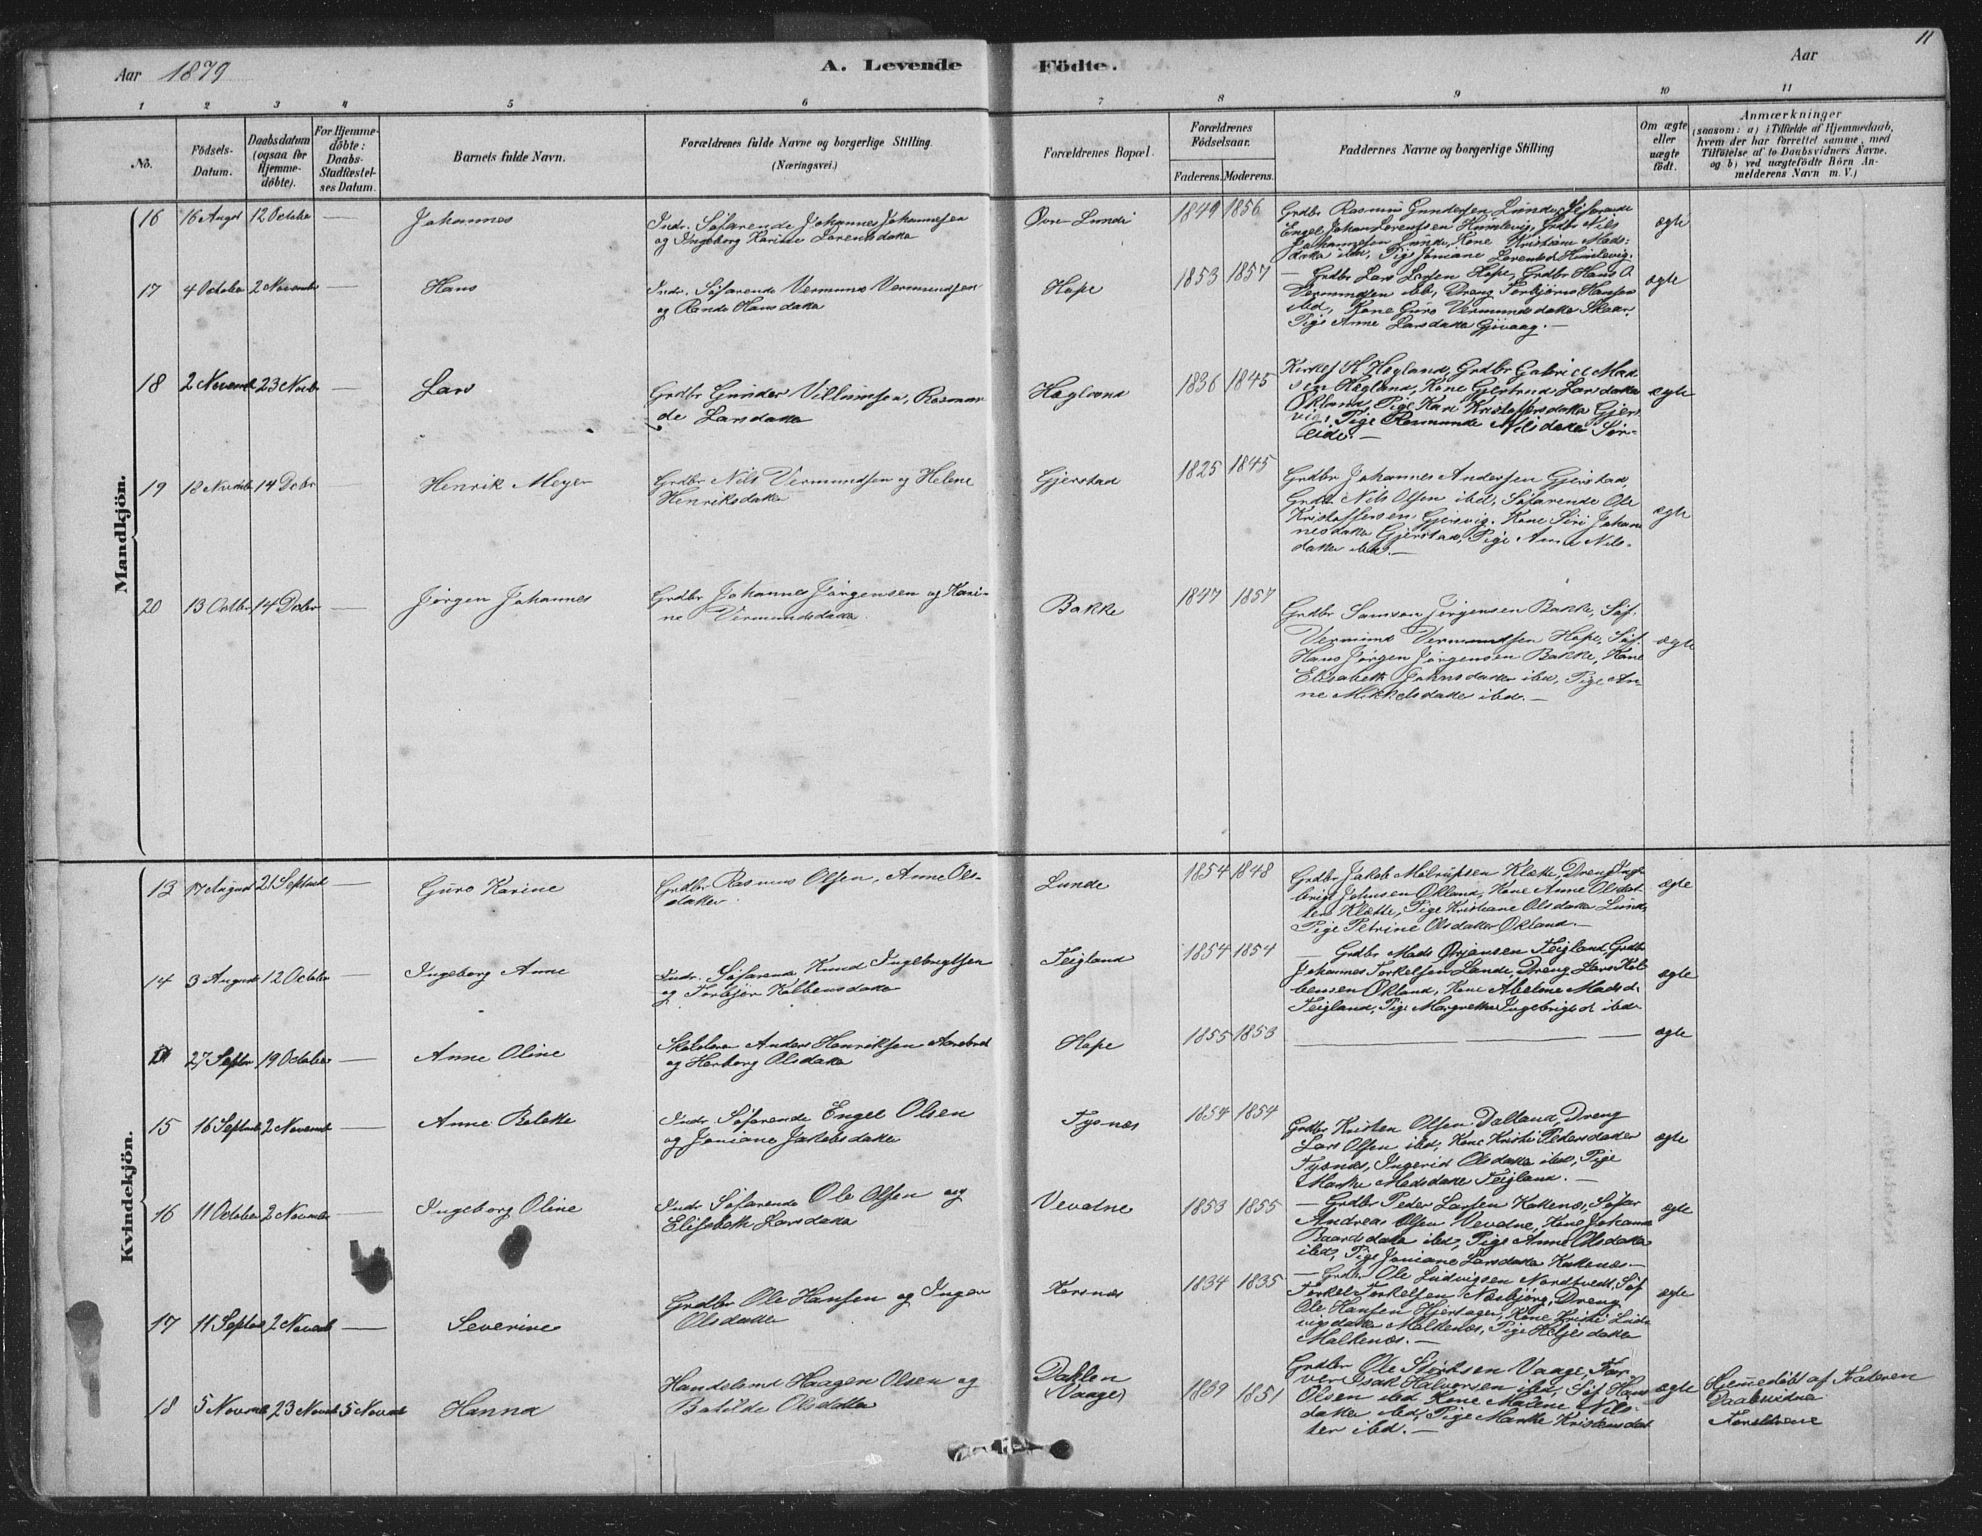 Aar 1879
A. Levende
Födte.
Aar
11
1 2 3 4 5 6 7 8 9 10 11
No.
Födsels-
Datum.
Daabsdatum
(ogsaa før
Hjemme-
döbte).
For Hjemme-
döbte:
Daabs-
Stadfæstel-
ses Datum.
Barnets fulde Navn.
Forældrenes fulde Navne og borgerlige Stilling.
(Næringsvei.)
Forældrenes Bopæl.
Forældrenes
Födselsaar.
Faderens. Moderens.
Faddernes Navne og borgerlige Stilling
Om ægte
eller
uægte
födt.
Anmærkninger
(saasom: a) i Tilfælde af Hjemmedaab,
hvem der har forrettet samme, med
Tilføielse af to Daabsvidners Navne,
og b) ved uægtefödte Börn An-
melderens Navn m. V.)
Mandkjön.
16 16 Augst 12 Octobe — Johannes
Indr. Söfarende Johannes Johannesen
og Ingeborg Karine Lorensdatter
Övre Lunde 1849 1856
Grdbr Rasmus Gundersen Lunde, Söfarende
Engel Johan Lorentsen Humlevig, Grdbr Nils
Johannesen Lunde, Kone Kristiane Mads-
datter ibd, Pige Joniane Lorensd Humlevig.
ægte
17 4 October 2 Novembr — Hans
Indr. Söfarende Vermund Vermundsen
og Rande Hansdatter
Hope 1853 1857
— Grdbr Lars Larsen Hope, Grdbr Hans O
Vermundsen ibd, Dreng Torbjörn Hansen
ibd, Kone Guro Vermundsdatter Skaar,
Pige Anne Larsdatter Gjövaag. —
ægte
18 2 Novemb 23 Novbr — Lars
Grdbr Gunder Villumsen, Rasmun-
de Larsdatter
Høgland 1836 1845
Kirkes H Høgland, Grdbr Gabriel Mad-
sen Høgland, Kone Gjertrud Larsdatter
Økland, Pige Kari Kristoffersdatter Gjers-
vig, Pige Rasmunde Nilsdatter Sör-
eide. —
ægte
19 18 Novmbr 14 Debr — Henrik Meyer
Grdbr Nils Vermundsen og Helene
Henriksdatter
Gjerstad 1825 1845
Grdbr Johannes Andersen Gjerstad,
Grdbr Nils Olsen ibd, Söfarende Ole
Kristoffersen Gjersvig, Kone Siri Johan-
nesdatter Gjerstad, Pige Anna Nils-
datter ibd. —
ægte
20 13 Octbr 14 Debr — Jörgen Johannes
Grdbr Johannes Jörgensen og Kari-
ne Vermundsdatter.
Bakke 1847 1857
Grdbr Samson Jörgensen Bakke, Söf.
Vermund Vermundsen Hope, Söf.
Hans Jörgen Jörgensen Bakke, Kone
Elisabeth Johnsdatter ibd, Pige An-
ne Mikkelsdatter ibd. —
ægte
Kvindekjön.
13 17 August 21 Septemb — Guro Karine
Grdbr Rasmus Olsen, Anne Ols-
datter.
Lunde 1854 1848
Grdbr Jakob Molrufsen Klætte, Dreng Inge-
brigt Johnsen Økland, Kone Anne Olsdat-
ter Klætte, Pige Kristiane Olsdatter Lunde
Pige Petrine Olsdatter Økland. —
ægte
14 3 August 12 October — Ingeborg Anne
Indr. Söfarende Knud Ingebrigtsen
og Torbjör Kolbensdatter
Teigland 1854 1854
— Grdbr Mads Ørjansen Teigland, Grdbr
Johannes Torkelsen Lande, Dreng Lars Kol-
bensen Økland, Kone Abelone Mads d.
Teigland, Pige Margrethe Ingebrigts d ibd
ægte
27 Septbr 19 October Anne Oline
Skolelærer Anders Henriksen Aarebrot
og Herborg Olsdatter
Hope 1855 1853
— — — —
ægte
15 16 Septemb 2 Novemb — Anne Bolette
Indr. Söfarende Engel Olsen
og Joniane Jakobsdatter
Tysnæs 1854 1854
Grdbr Kristen Olsen Dalland, Dreng
Lars Olsen ibd, Kone Kristi Pedersdatter
Tysnæs, Ingerid Olsdatter ibd, Pige
Marthe Madsdatter Teigland. —
ægte
16 11 October 2 Novmbr — Ingeborg Oline
Indr Söfarende Ole Olsen og
Elisabeth Larsdatter
Vevatne 1853 1855
— Grdbr Peder Larsen Kaltenæs, Söfar
Andreas Olsen Vevatne, Kone Johanna
Baardsdatter ibd, Pige Anne Olsdatter
ibd, Pige Joniane Larsdatter Kaltenæs. —
ægte
17 11 Septbr 2 Novmb — Severine
Grdbr Ole Hansen og Inger
Olsdatter
Korsnæs 1834 1835
— Grdbr Ole Ludvigsen Nordtvedt, Söf
Torkel Torkelsen Næsbjörg, Dreng
Ole Hansen Hjertager, Kone Kristi Lud-
vigsdatter Malkenæs, Pige Heljesdatter
Malkenæs. —
ægte
18 5 Novemb 23 Novmb 5 Novmb Hanna
Handelsmd Haagen Olsen og
Batilde Olsdatter
Dahlen
(Vaage)
1839 1851
Grdbr Ole Störksen Vaage, Far-
ver Isak Halvorsen ibd, Söf Hans
Olsen ibd, Kone Malene Nils-
datter ibd, Pige Marthe Kristensdat-
ter ibd. —
ægte
Hjemmedöbt af Faderen
Daabsvidne
Forældrene